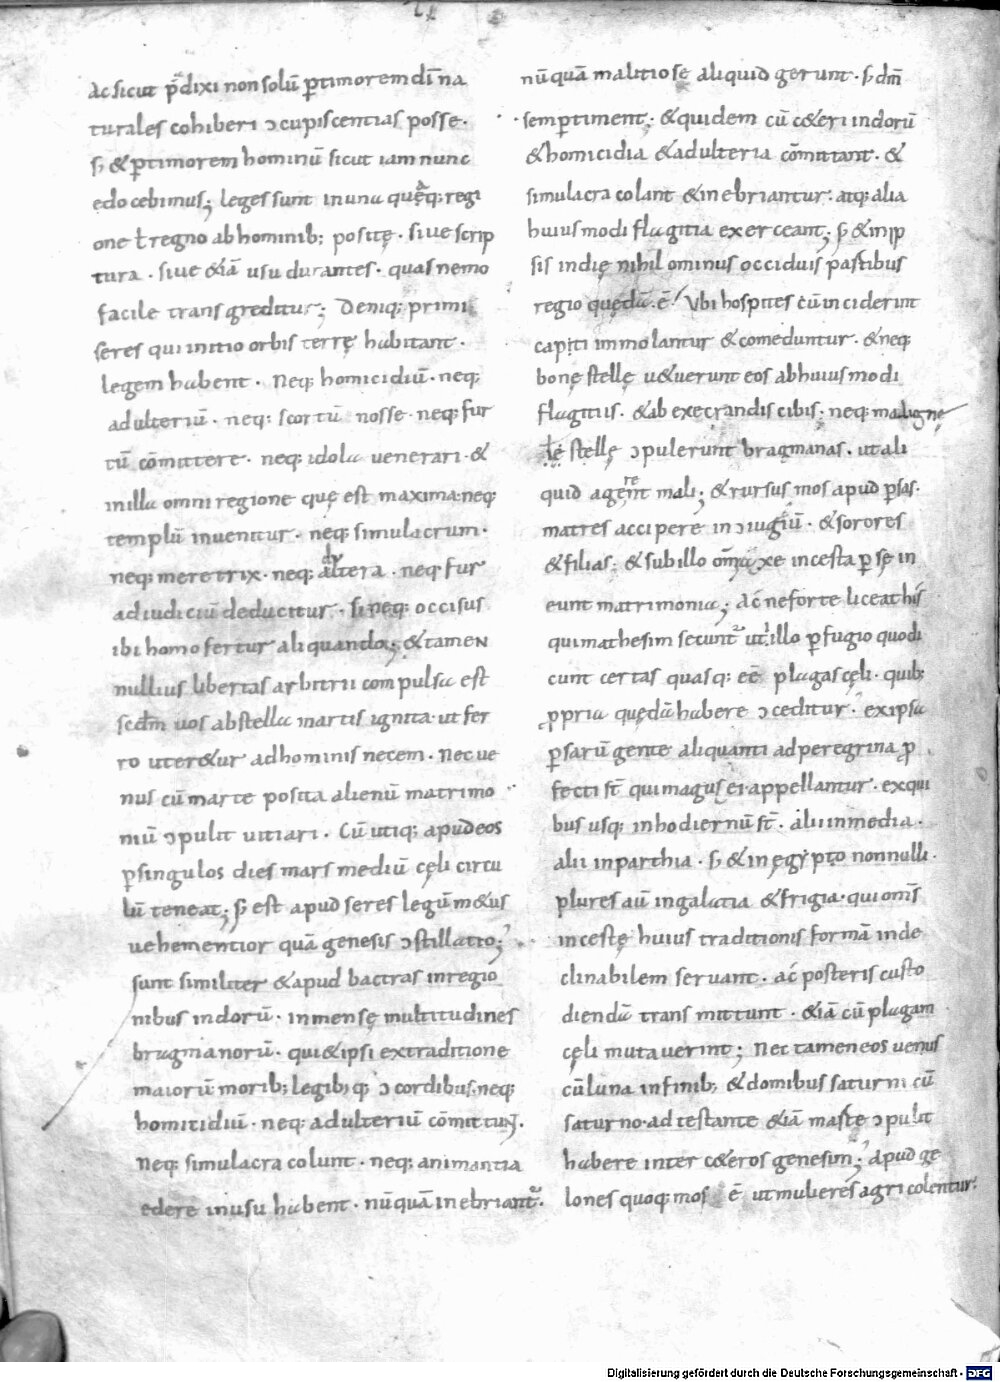 Ac sicut p̄dixi non solū ꝑ timorem dī na
turales cohiberi ↄcupiscentias posse·
s; & ꝑ timorem hominū sicut iam nunc
edocebimus; leges sunt in una quęq; regi
one ł regno ab hominib; positę· siue scrip
tura· siue &iā usu durantes· quas nemo
facile transgreditur; Deniq; primi
seres qui initio orbis terrę habitant·
legem habent· Neq; homicidiū· neq;
adulteriū· neq; scortū nosse· neq; fur
tū cōmittere· neq; idola uenerari· &
in illa omni regione quę est maxima· neq;
templū inuenitur· neq; simulacrum·
neq; meretrix· neq; adultera· neq fur
ad iudiciū deducitur· si neq; occisus
ibi homo fertur aliquando; & tamen
nullius libertas arbitrii compulsa est
scđm uos ab stella martis ignita· ut fer
ro uter&ur ad hominis necem· Nec ue
nus cū marte posita alienū matrimo
niū ↄpulit uitiari· Cū utiq; apud eos
ꝑ singulos dies mars mediū cęli circu
lū teneat; s; est apud seres legū m&us
uehementior quā genesis ↄstillatio;
sunt similiter & apud bactras in regio
nibus indorū· inmensę multitudines
bragmanorū· qui & ipsi ex traditione
maiorū morib; legib; q; ↄcordibus· neq;
homitidiū· neq; adulteriū cōmittunt·
Neq; simulacra colunt· neq; animantia
edere in usu habent· nūquā inebriant᷑·
nūquā malitiose aliquid gerunt· s; dm̄
semꝑ timent; & quidem cū c&eri indorū
& homicidia & adulteria cōmittant· &
simulacra colant & inebriantur· atq; alia
huiusmodi flagitia exerceant; s; & in ip
sis indię nihil ominus occiduis partibus
regio quędā· ē Vbi hospites cū inciderint
capiti immolantur & comeduntur· & neq;
bonę stellę u&uerunt eos ab huiusmodi
flagitiis· & ab execrandis cibis· neq; maligne
stellę ↄpulerunt bragmanas· ut ali
quid agerent mali; & rursus mos apud ꝑsas·
matres accipere in ↄiugiū· & sorores
& filias; & sub illo incesta ꝑsę in
eunt matrimonia; Ac ne forte liceat his
qui mathesim secunt᷑ uti illo ꝑfugio quo di
cunt certas quasq; eē plagas cęli· quib;
ꝓpria quędā habere ↄceditur· ex ipsa
ꝑsarū gente aliquanti ad peregrina ꝓ
fecti st̄ qui magusęi appellantur· ex qui
bus usq; in hodiernū st̄· alii in media·
alii in parthia· s; & in egypto nonnulli·
plures aū in galatia & frigia· qui om̄s
incestę huius traditionis formā inde
clinabilem seruant· ac posteris custo
diendā transmittunt· &iā cū plagam
cęli mutauerint; Nec tamen eos uenus
cū luna in finib; & domibus saturni cū
saturno· adtestante &iā marte ↄpulit
habere inter c&eros genesim; Apud ge
lones quoq; mos ē ut mulieres agri colentur·